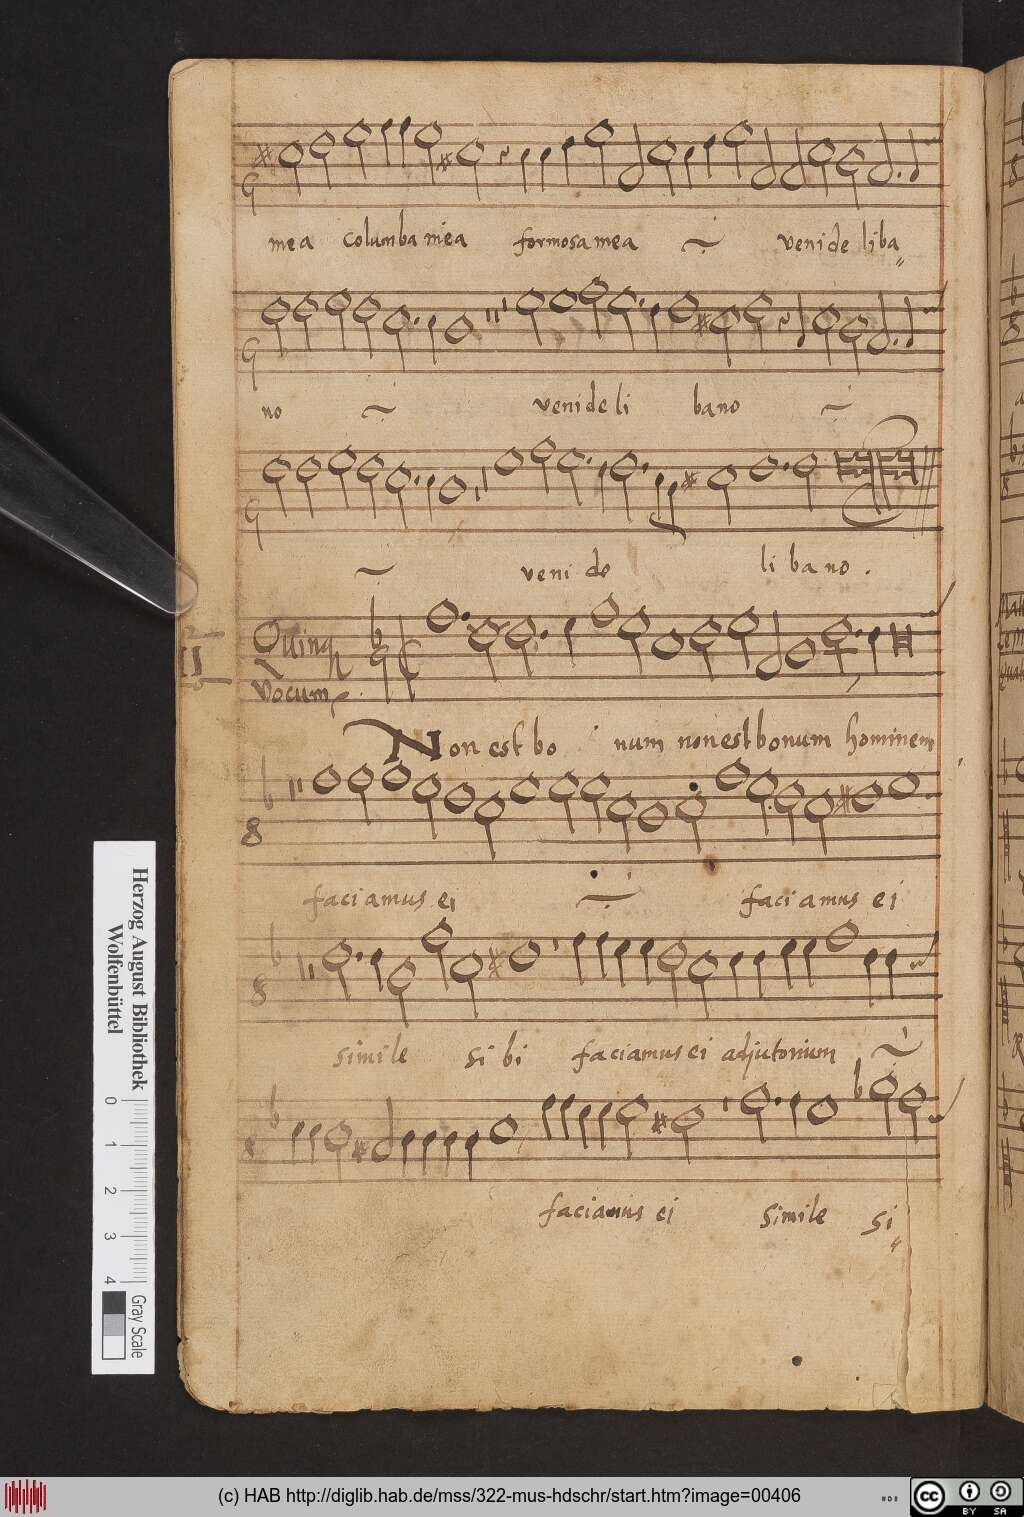 mea columba mea formosa mea veni de liba
no veni de li bano
veni do li ba no .
II
Quinq
Vocum
Non est bo num non est bonum hominem
faciamus ei faciamus ei
simile si bi faciamus ei adjutorium
faciamus ei simile si
Herzog August Bibliothek
Wolfenbüttel
0 1 2 3 4
Gray Scale
(c) HAB http://diglib.hab.de/mss/322-mus-hdschr/start.htm?image=00406
cc BY SA